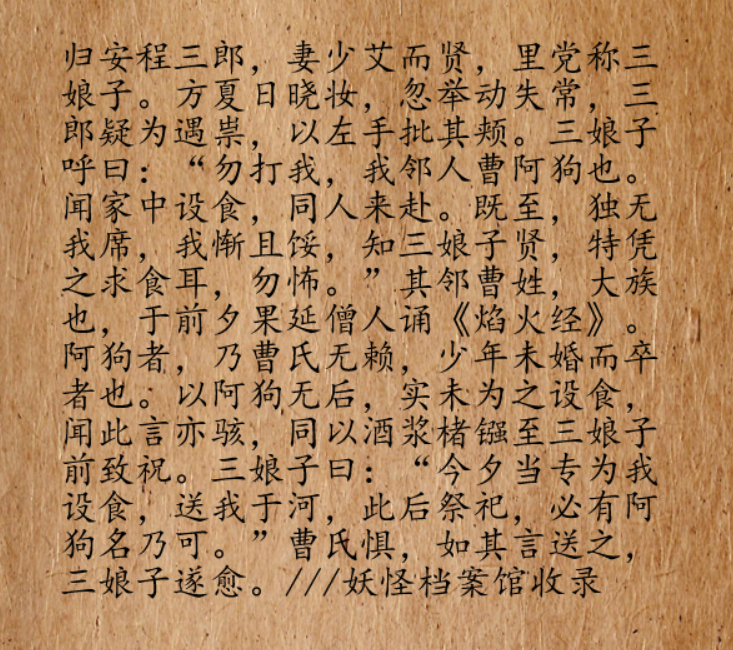 归安程三郎，妻少艾而贤，里党称三
娘子。方夏日晓妆，忽举动失常，三
郎疑为遇祟，以左手批其颊。三娘子
呼曰：“勿打我，我邻人曹阿狗也。
闻家中设食，同人来赴。既至，独无
我席，我惭且馁，知三娘子贤，特凭
之求食耳，勿怖。”其邻曹姓，大族
也，于前夕果延僧人诵《焰火经》。
阿狗者，乃曹氏无赖，少年未婚而卒
者也。以阿狗无后，实未为之设食，
闻此言亦骇，同以酒浆楮镪至三娘子
前致祝。三娘子曰：“今夕当专为我
设食，送我于河，此后祭祀，必有阿
狗名乃可。”曹氏惧，如其言送之，
三娘子遂愈。///妖怪档案馆收录